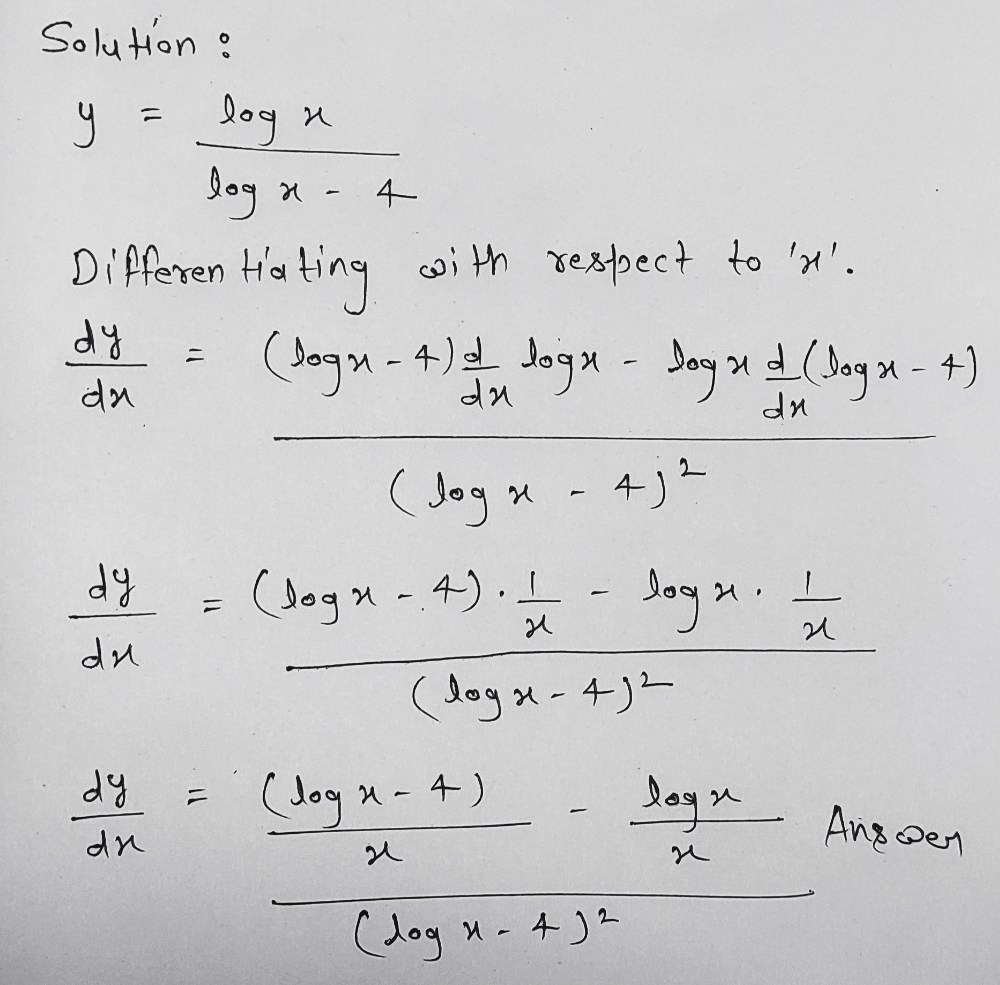 Solution :
y = log x / log x - 4
Differentiating with respect to 'x'.
dy/dx = ((log x - 4) d/dx log x - log x d/dx (log x - 4)) / (log x - 4)²
dy/dx = ((log x - 4) · 1/x - log x · 1/x) / (log x - 4)²
dy/dx = ((log x - 4)/x - log x/x) / (log x - 4)² Answer